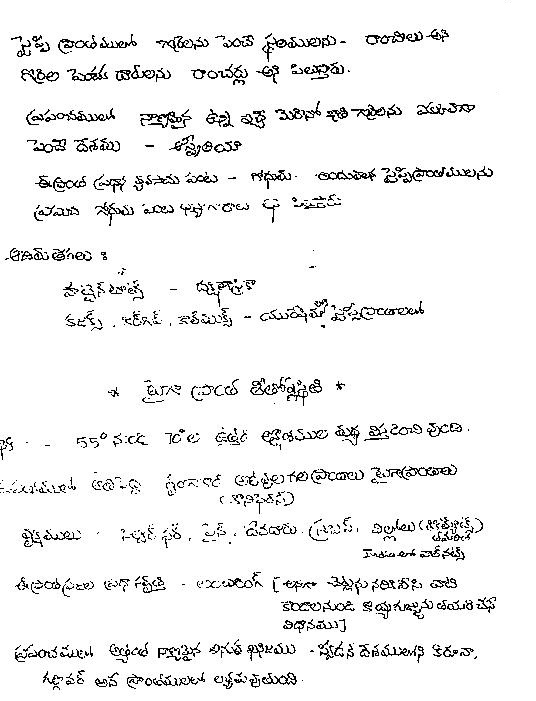 స్టెప్పి ప్రాంతములలో గొర్రెలను పెంచే స్థలములను - రాంచీలు అని
గొర్రెల పెంపకు దారులను రాంచర్లు అని పిలుస్తారు.
ప్రపంచములో నాణ్యమైన ఉన్ని ఇచ్చే మెరినో జాతి గొర్రెలను
పెంచే దేశము - ఆస్ట్రేలియా
ఈ ప్రాంత ప్రధాన వ్యవసాయ పంట - గోధుమ. అందువలన స్టెప్పి ప్రాంతములను
ప్రపంచ గోధుమ పంట
ఆదిమ తెగలు :
- దక్షిణాఫ్రికా
కజక్స్, కిర్గిజ్, కాల్ముక్స్ - యురేషియా స్టెప్పి ప్రాంతాలలో
* టైగా ప్రాంత శీతోష్ణస్థితి *
- 55° నుండి 70° ల ఉత్తర అక్షాంశముల మధ్య విస్తరించి వుంది.
ప్రపంచములో అతిపెద్ద శృంగాకార అరణ్యాలు గల ప్రాంతాలు టైగా ప్రాంతాలు
(కానిఫెరస్)
వృక్షములు - సిల్వర్ ఫర్, పైన్, దేవదారు, స్ప్రూస్, విల్లోలు
ఈ ప్రాంత ప్రజల ప్రధాన వృత్తి - లంబరింగ్ [అనగా చెట్లను నరికివేసి వాటి
కాండాలనుండి కొయ్యగుజ్జును తయారు చేసే
విధానము]
ప్రపంచములో అత్యంత నాణ్యమైన ఇనుప ఖనిజము - స్వీడన్ దేశములోని కిరూనా,
గల్లివర్ అనే ప్రాంతములలో లభ్యమవుతుంది.